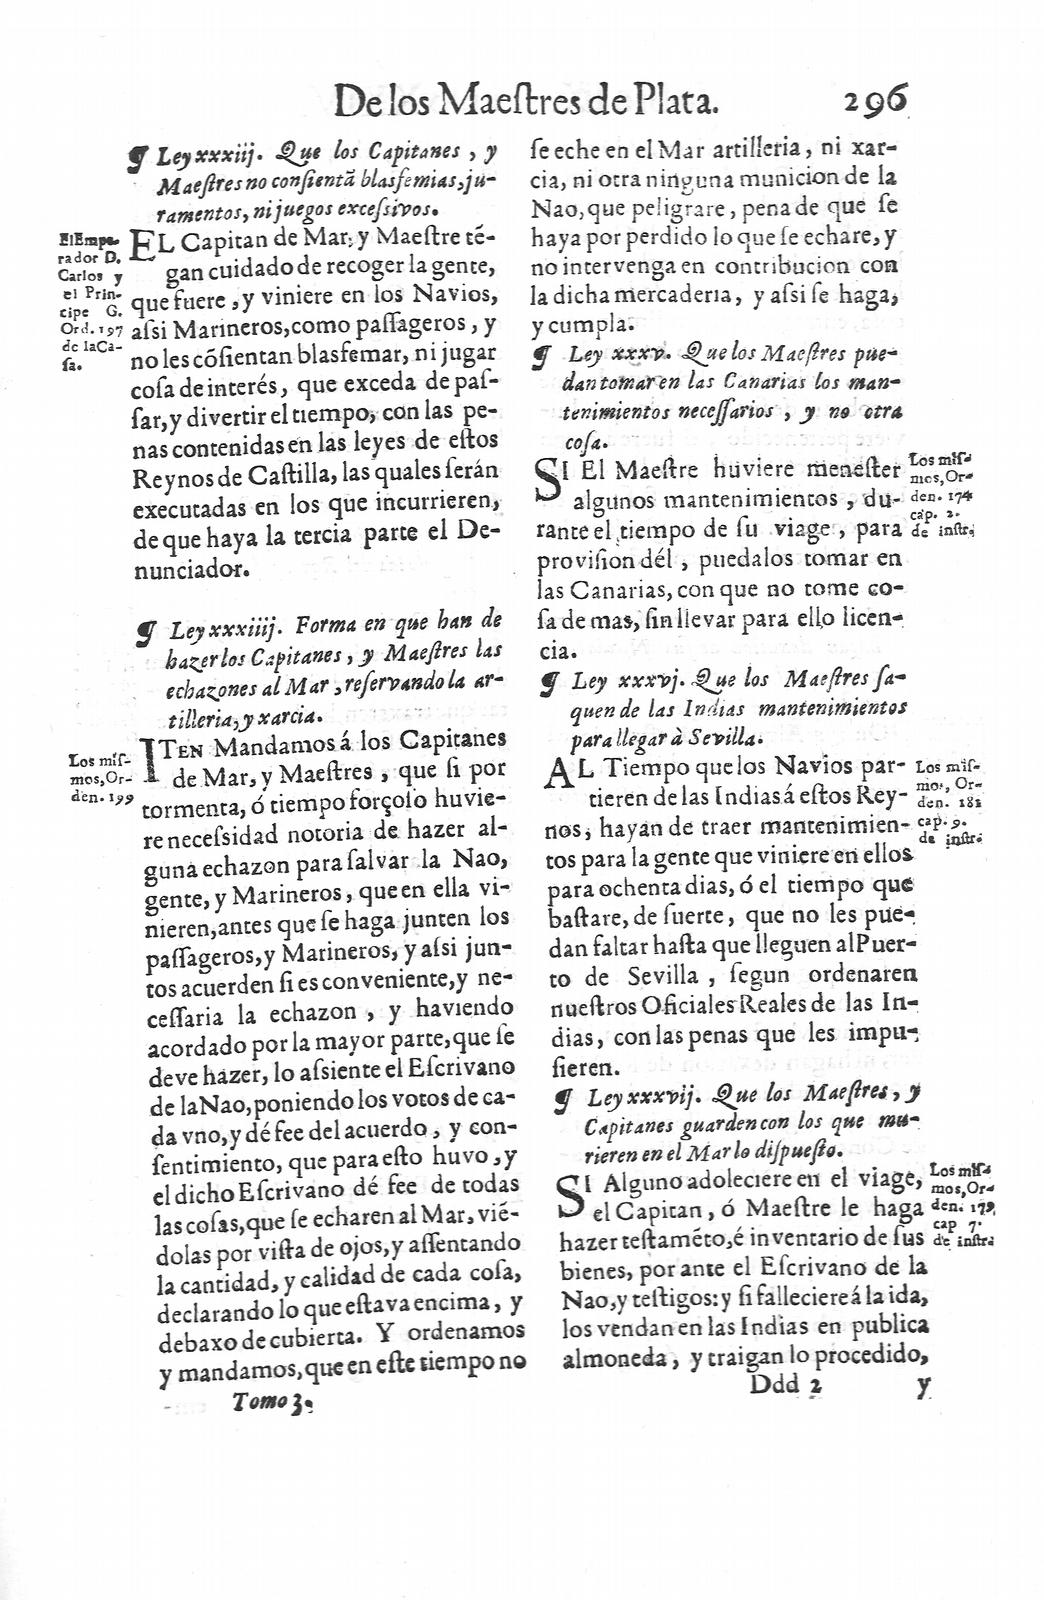 De los Maeſtres de Plata. 296
¶ Ley xxxiij. Que los Capitanes, y
Maeſtres no conſientā blasfemias, ju-
ramentos, ni juegos exceſsivos.
El Empe-
rador D.
Carlos y
el Prin-
cipe G.
Ord. 197
de la Ca-
ſa.
EL Capitan de Mar, y Maeſtre tē-
gan cuidado de recoger la gente,
que fuere, y viniere en los Navios,
aſsi Marineros, como paſſageros, y
no les cōſientan blasfemar, ni jugar
coſa de interés, que exceda de paſ-
ſar, y divertir el tiempo, con las pe-
nas contenidas en las leyes de eſtos
Reynos de Caſtilla, las quales ſerán
executadas en los que incurrieren,
de que haya la tercia parte el De-
nunciador.
¶ Ley xxxiiij. Forma en que han de
hazer los Capitanes, y Maeſtres las
echazones al Mar, reſervando la ar-
tilleria, y xarcia.
Los miſ-
mos, Or-
den. 199
ITEN Mandamos á los Capitanes
de Mar, y Maeſtres, que ſi por
tormenta, ó tiempo forçoſo huvie-
re neceſsidad notoria de hazer al-
guna echazon para ſalvar la Nao,
gente, y Marineros, que en ella vi-
nieren, antes que ſe haga junten los
paſſageros, y Marineros, y aſsi jun-
tos acuerden ſi es conveniente, y ne-
ceſſaria la echazon, y haviendo
acordado por la mayor parte, que ſe
deve hazer, lo aſsiente el Eſcrivano
de la Nao, poniendo los votos de ca-
da vno, y dé fee del acuerdo, y con-
ſentimiento, que para eſto huvo, y
el dicho Eſcrivano dé fee de todas
las coſas, que ſe echaren al Mar, viē-
dolas por viſta de ojos, y aſſentando
la cantidad, y calidad de cada coſa,
declarando lo que eſtava encima, y
debaxo de cubierta. Y ordenamos
y mandamos, que en eſte tiempo no
Tomo 3.
ſe eche en el Mar artilleria, ni xar-
cia, ni otra ninguna municion de la
Nao, que peligrare, pena de que ſe
haya por perdido lo que ſe echare, y
no intervenga en contribucion con
la dicha mercaderia, y aſsi ſe haga,
y cumpla.
¶ Ley xxxv. Que los Maeſtres pue-
dan tomar en las Canarias los man-
tenimientos neceſſarios, y no otra
coſa.
Los miſ-
mos, Or-
den. 174
cap. 2.
de inſtr.
SI El Maeſtre huviere meneſter
algunos mantenimientos, du-
rante el tiempo de ſu viage, para
proviſion dél, puedalos tomar en
las Canarias, con que no tome co-
ſa de mas, ſin llevar para ello licen-
cia.
¶ Ley xxxvj. Que los Maeſtres ſa-
quen de las Indias mantenimientos
para llegar à Sevilla.
Los miſ-
mos, Or-
den. 181
cap. 9.
de inſtr.
AL Tiempo que los Navios par-
tieren de las Indias á eſtos Rey-
nos, hayan de traer mantenimien-
tos para la gente que viniere en ellos
para ochenta dias, ó el tiempo que
baſtare, de ſuerte, que no les pue-
dan faltar haſta que lleguen al Puer-
to de Sevilla, ſegun ordenaren
nueſtros Oficiales Reales de las In-
dias, con las penas que les impu-
ſieren.
¶ Ley xxxvij. Que los Maeſtres, y
Capitanes guarden con los que mu-
rieren en el Mar lo diſpueſto.
Los miſ-
mos, Or-
den. 179
cap 7.
de inſtr.
SI Alguno adoleciere en el viage,
el Capitan, ó Maeſtre le haga
hazer teſtamēto, é inventario de ſus
bienes, por ante el Eſcrivano de la
Nao, y teſtigos: y ſi falleciere á la ida,
los vendan en las Indias en publica
almoneda, y traigan lo procedido,
Ddd 2 y